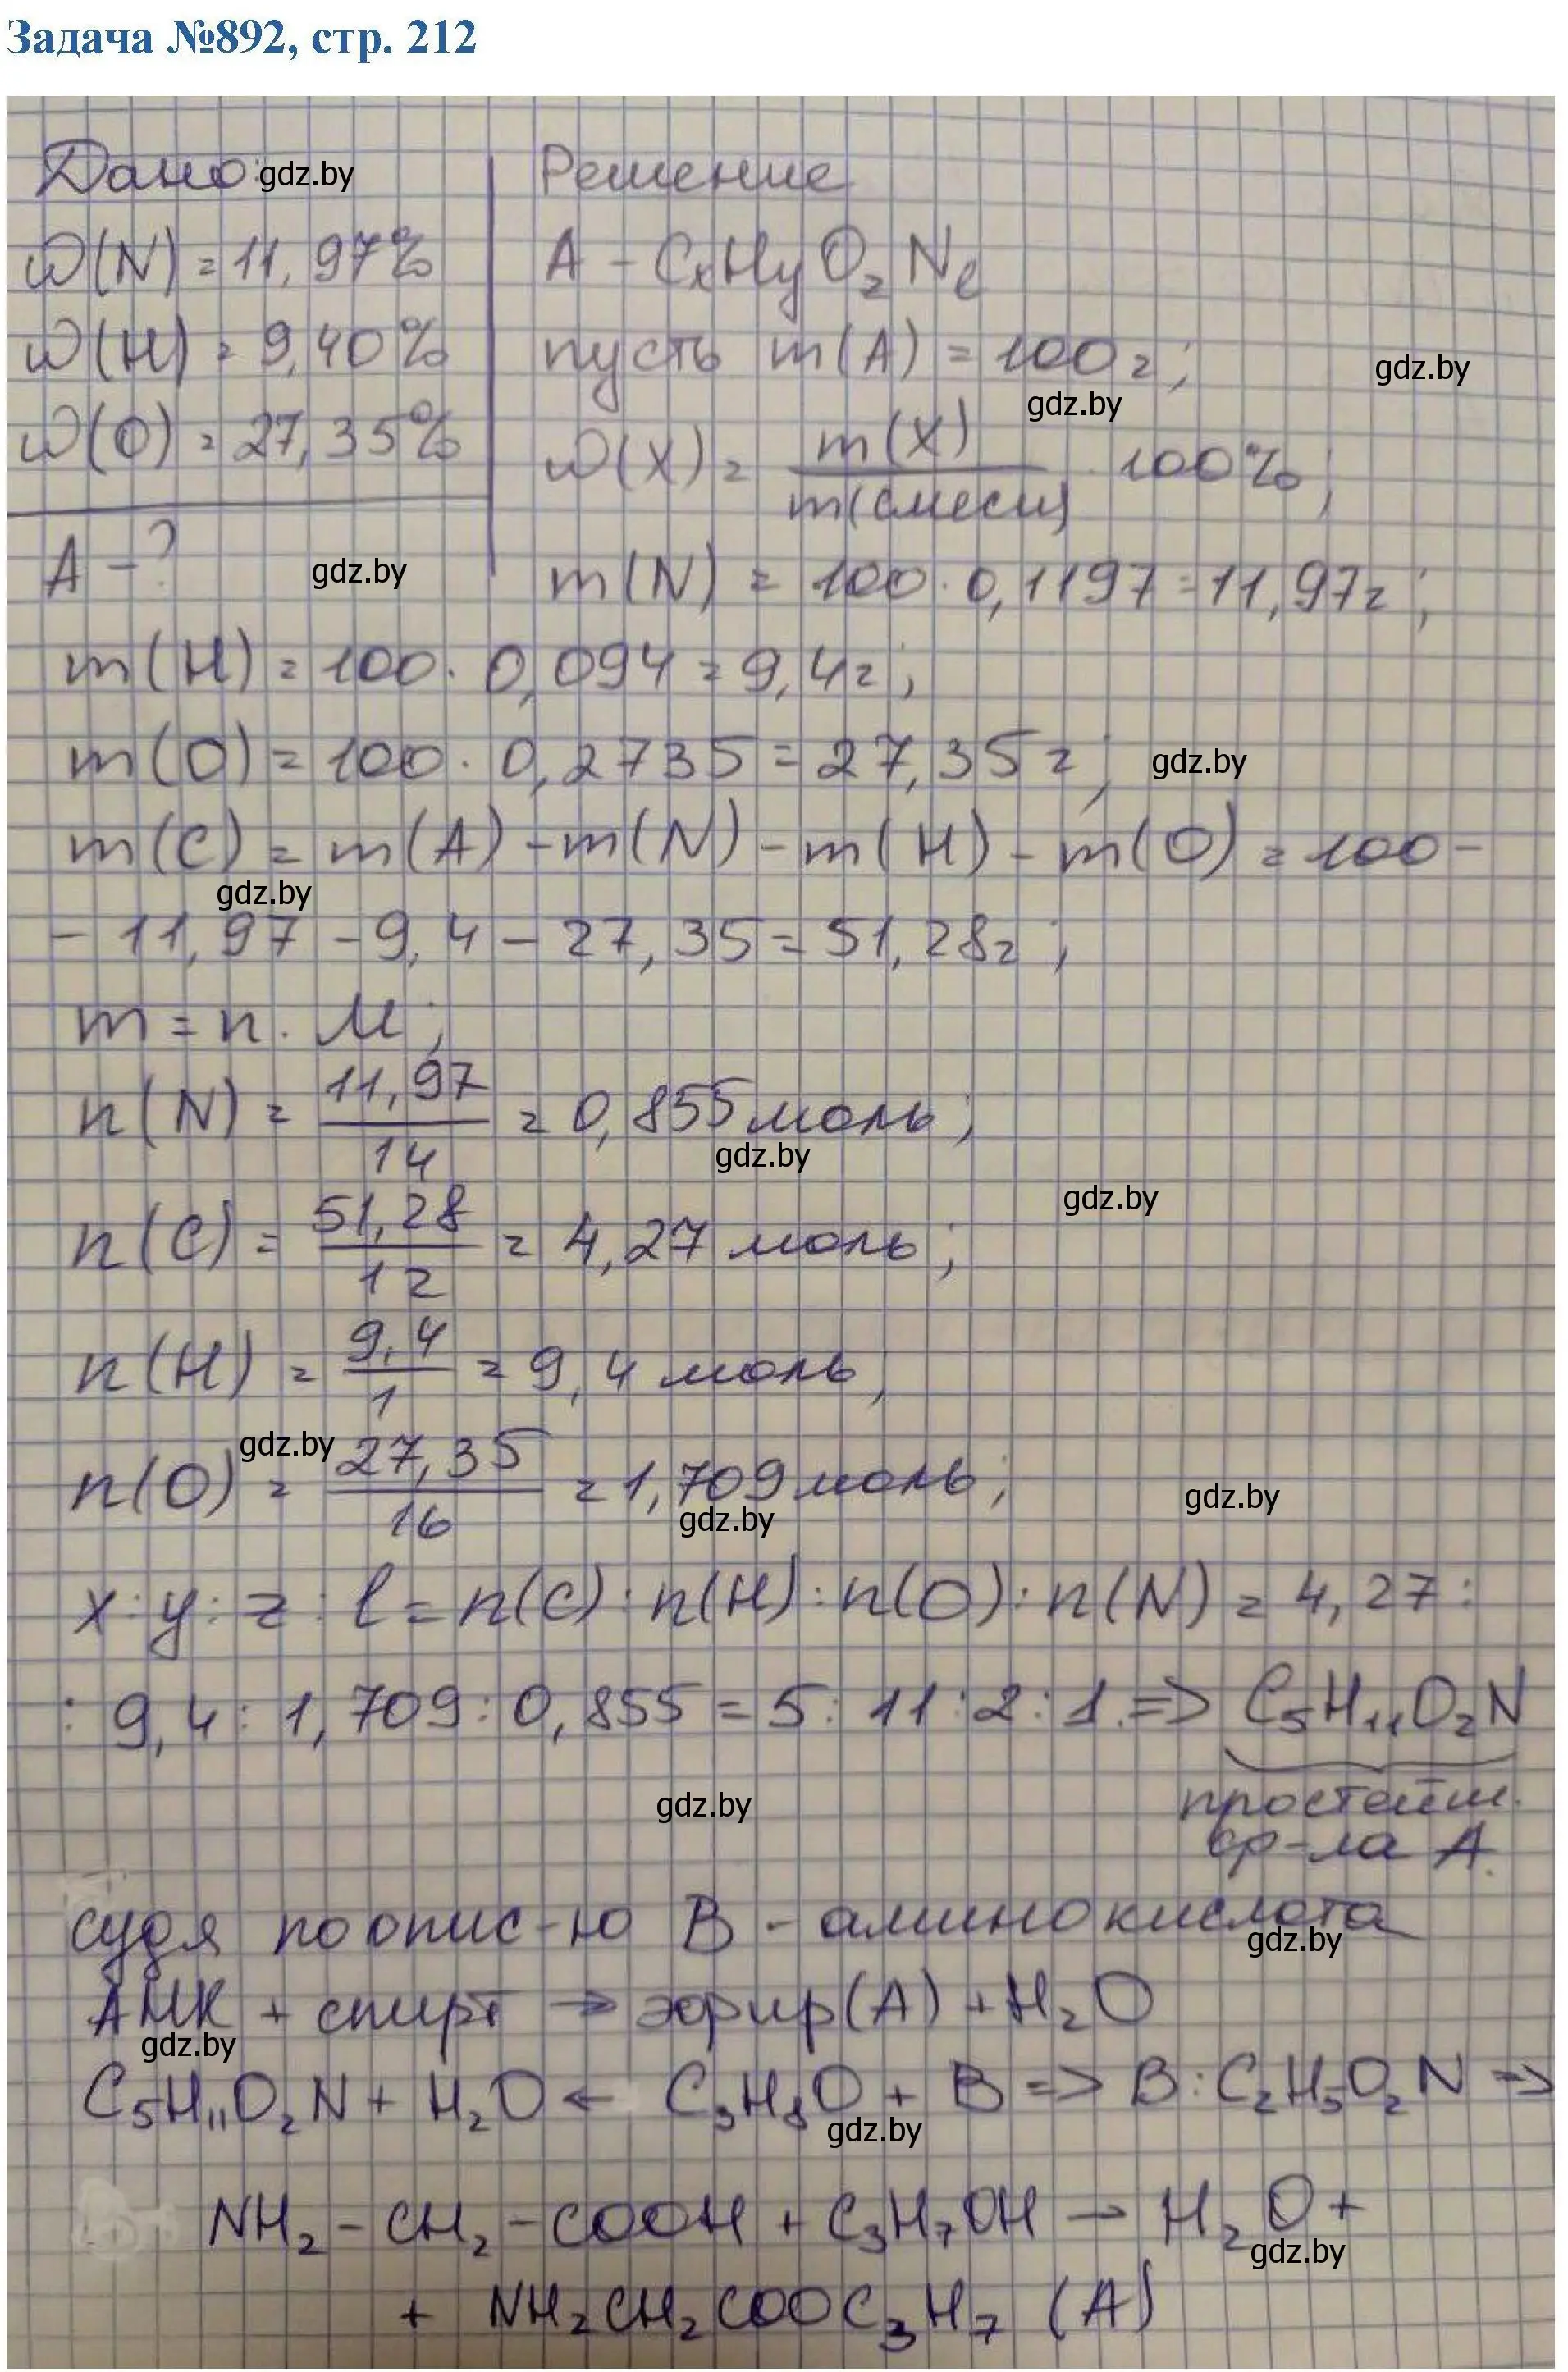 Задача №892, стр. 212
Дано: gdz.by
Решение
ω(N) = 11,97%
A – CxHyOzNl
ω(H) = 9,40%
пусть m(A) = 100г;
gdz.by
gdz.by
ω(O) = 27,35%
ω(X) = m(X)/m(смеси) · 100%;
A – ?
gdz.by
m(N) = 100 · 0,1197 = 11,97г;
m(H) = 100 · 0,094 = 9,4г;
m(O) = 100 · 0,2735 = 27,35г;
gdz.by
m(C) = m(A) – m(N) – m(H) – m(O) = 100 –
gdz.by
– 11,97 – 9,4 – 27,35 = 51,28г;
m = n · M;
n(N) = 11,97/14 = 0,855 моль;
gdz.by
gdz.by
n(C) = 51,28/12 = 4,27 моль;
n(H) = 9,4/1 = 9,4 моль;
gdz.by
n(O) = 27,35/16 = 1,709 моль;
gdz.by
gdz.by
x : y : z : l = n(C) : n(H) : n(O) : n(N) = 4,27 :
: 9,4 : 1,709 : 0,855 = 5 : 11 : 2 : 1. => C₅H₁₁O₂N
gdz.by
простейш.
ф-ла A.
судя по опис-ю B - аминокислота
gdz.by
АМК + спирт → эфир(A) + H₂O
gdz.by
C₅H₁₁O₂N + H₂O ← C₃H₈O + B => B : C₂H₅O₂N =>
gdz.by
NH₂ – CH₂ – COOH + C₃H₇OH → H₂O +
gdz.by
+ NH₂CH₂COOC₃H₇ (A)